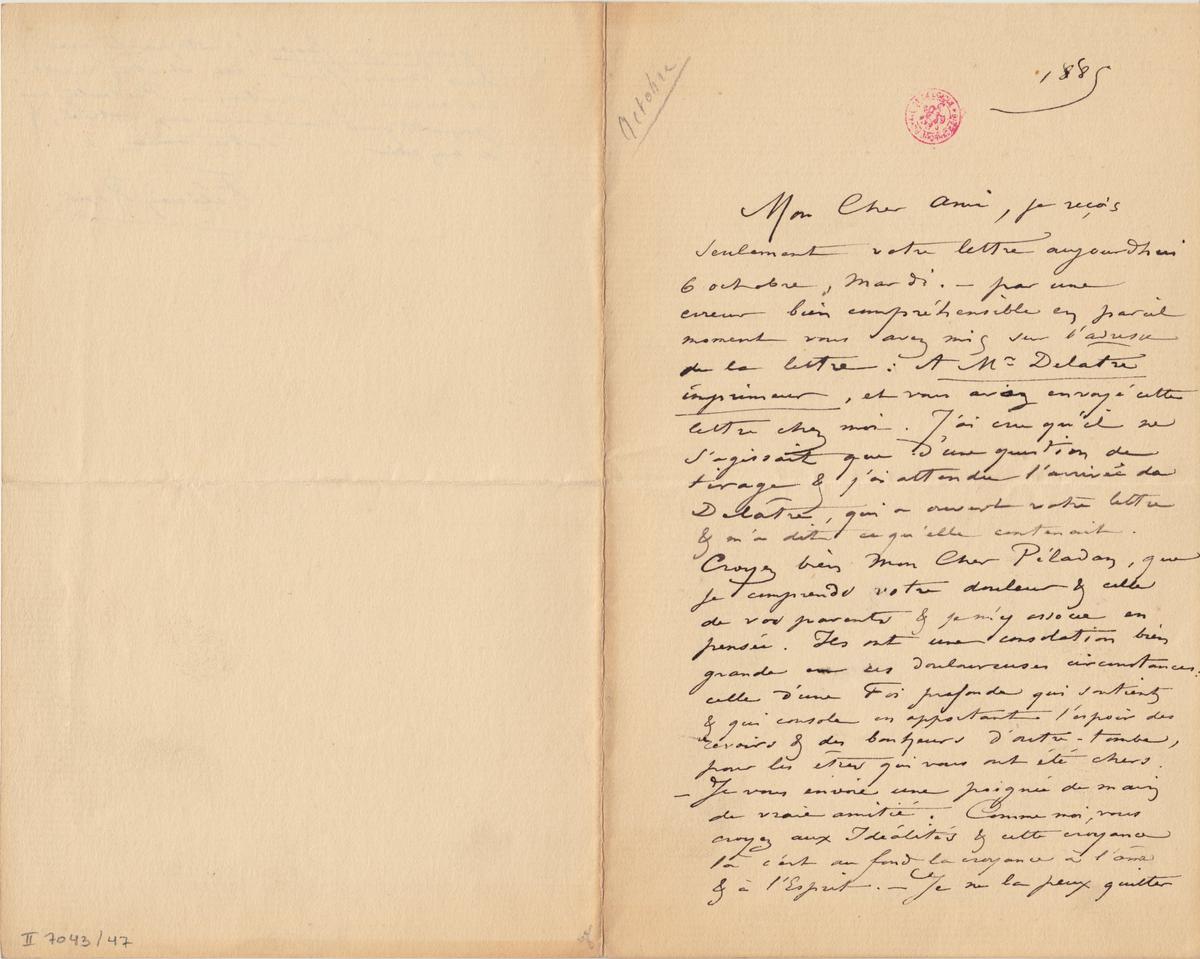 Octobre
1885
Mon Cher Ami, je reçois
seulement votre lettre aujourdhui
6 octobre, Mardi. — par une
erreur bien compréhensible en pareil
moment vous avez mis sur l'adresse
de la lettre : A Mr Delatre
imprimeur, et vous avez envoyé cette
lettre chez moi. J'ai cru qu'il ne
s'agissait que d'une question de
tirage & j'ai attendu l'arrivée de
Delâtre, qui a ouvert votre lettre
& m'a dit ce qu'elle contenait.
Croyez bien Mon Cher Péladan, que
je comprends votre douleur & celle
de vos parents & je m'y associe en
pensée. Ils ont une consolation bien
grande en ces douloureuses circonstances:
celle d'une Foi profonde qui soutient
& qui console en apportant l'espoir des
revoirs & des bonheurs d'outre-tombe,
pour les êtres qui vous ont été chers.
— Je vous envoie une poignée de main
de vraie amitié. Comme moi, vous
croyez aux Idéalités & cette croyance
là c'est au fond la croyance à l'âme
& à l'Esprit. — Je ne la peux quitter
II 7043/47